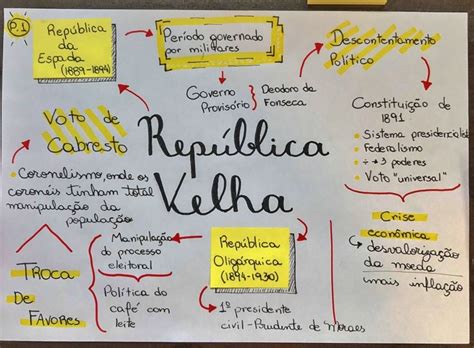 P.1
República
da
Espada
(1889-1894)
Período governado
por militares
Descontentamento
Político
Governo
Provisório
Deodoro da
Fonseca
Constituição de
1891
• Sistema presidencialista
• Federalismo
• ÷ → 3 poderes
• Voto "universal"
Voto de
Cabresto
• Coronelismo, onde os
coronéis tinham total
manipulação da
população
República
Velha
Crise
econômica
↳ desvalorização
da moeda
mais inflação
Manipulação
do processo
eleitoral
Política do
café com
leite
República
Oligárquica
(1894-1930)
1º presidente
civil - Prudente de Moraes
TROCA
DE
FAVORES